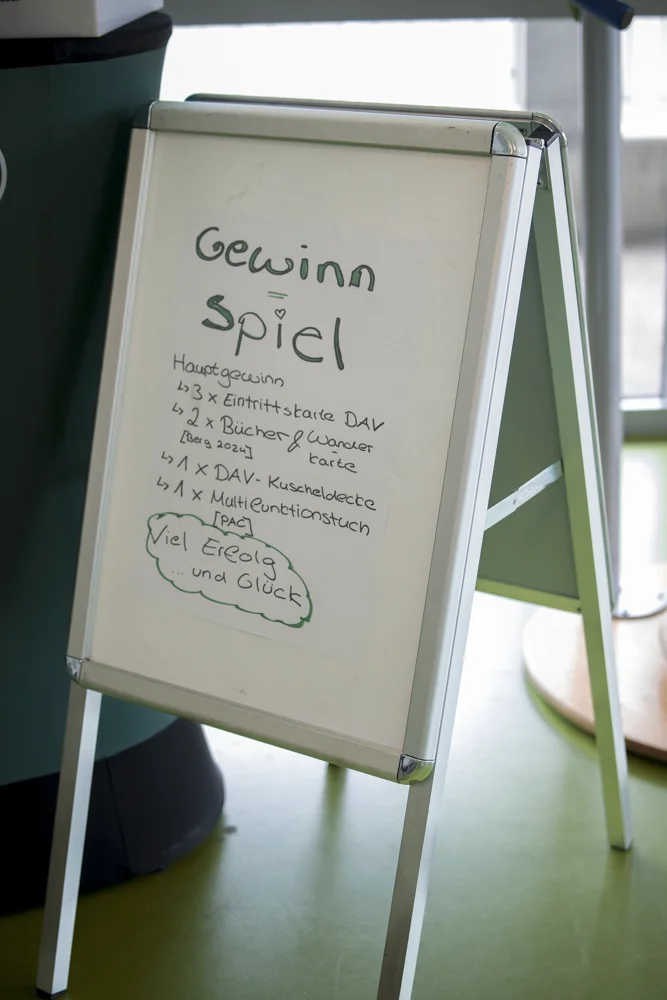 Gewinn
=
Spiel
Hauptgewinn
↳ 3 x Eintrittskarte DAV
↳ 2 x Bücher & Wander
[Berg 2024] karte
↳ 1 x DAV-Kuscheldecke
↳ 1 x Multifunktionstuch
[PAC]
Viel Erfolg
... und Glück